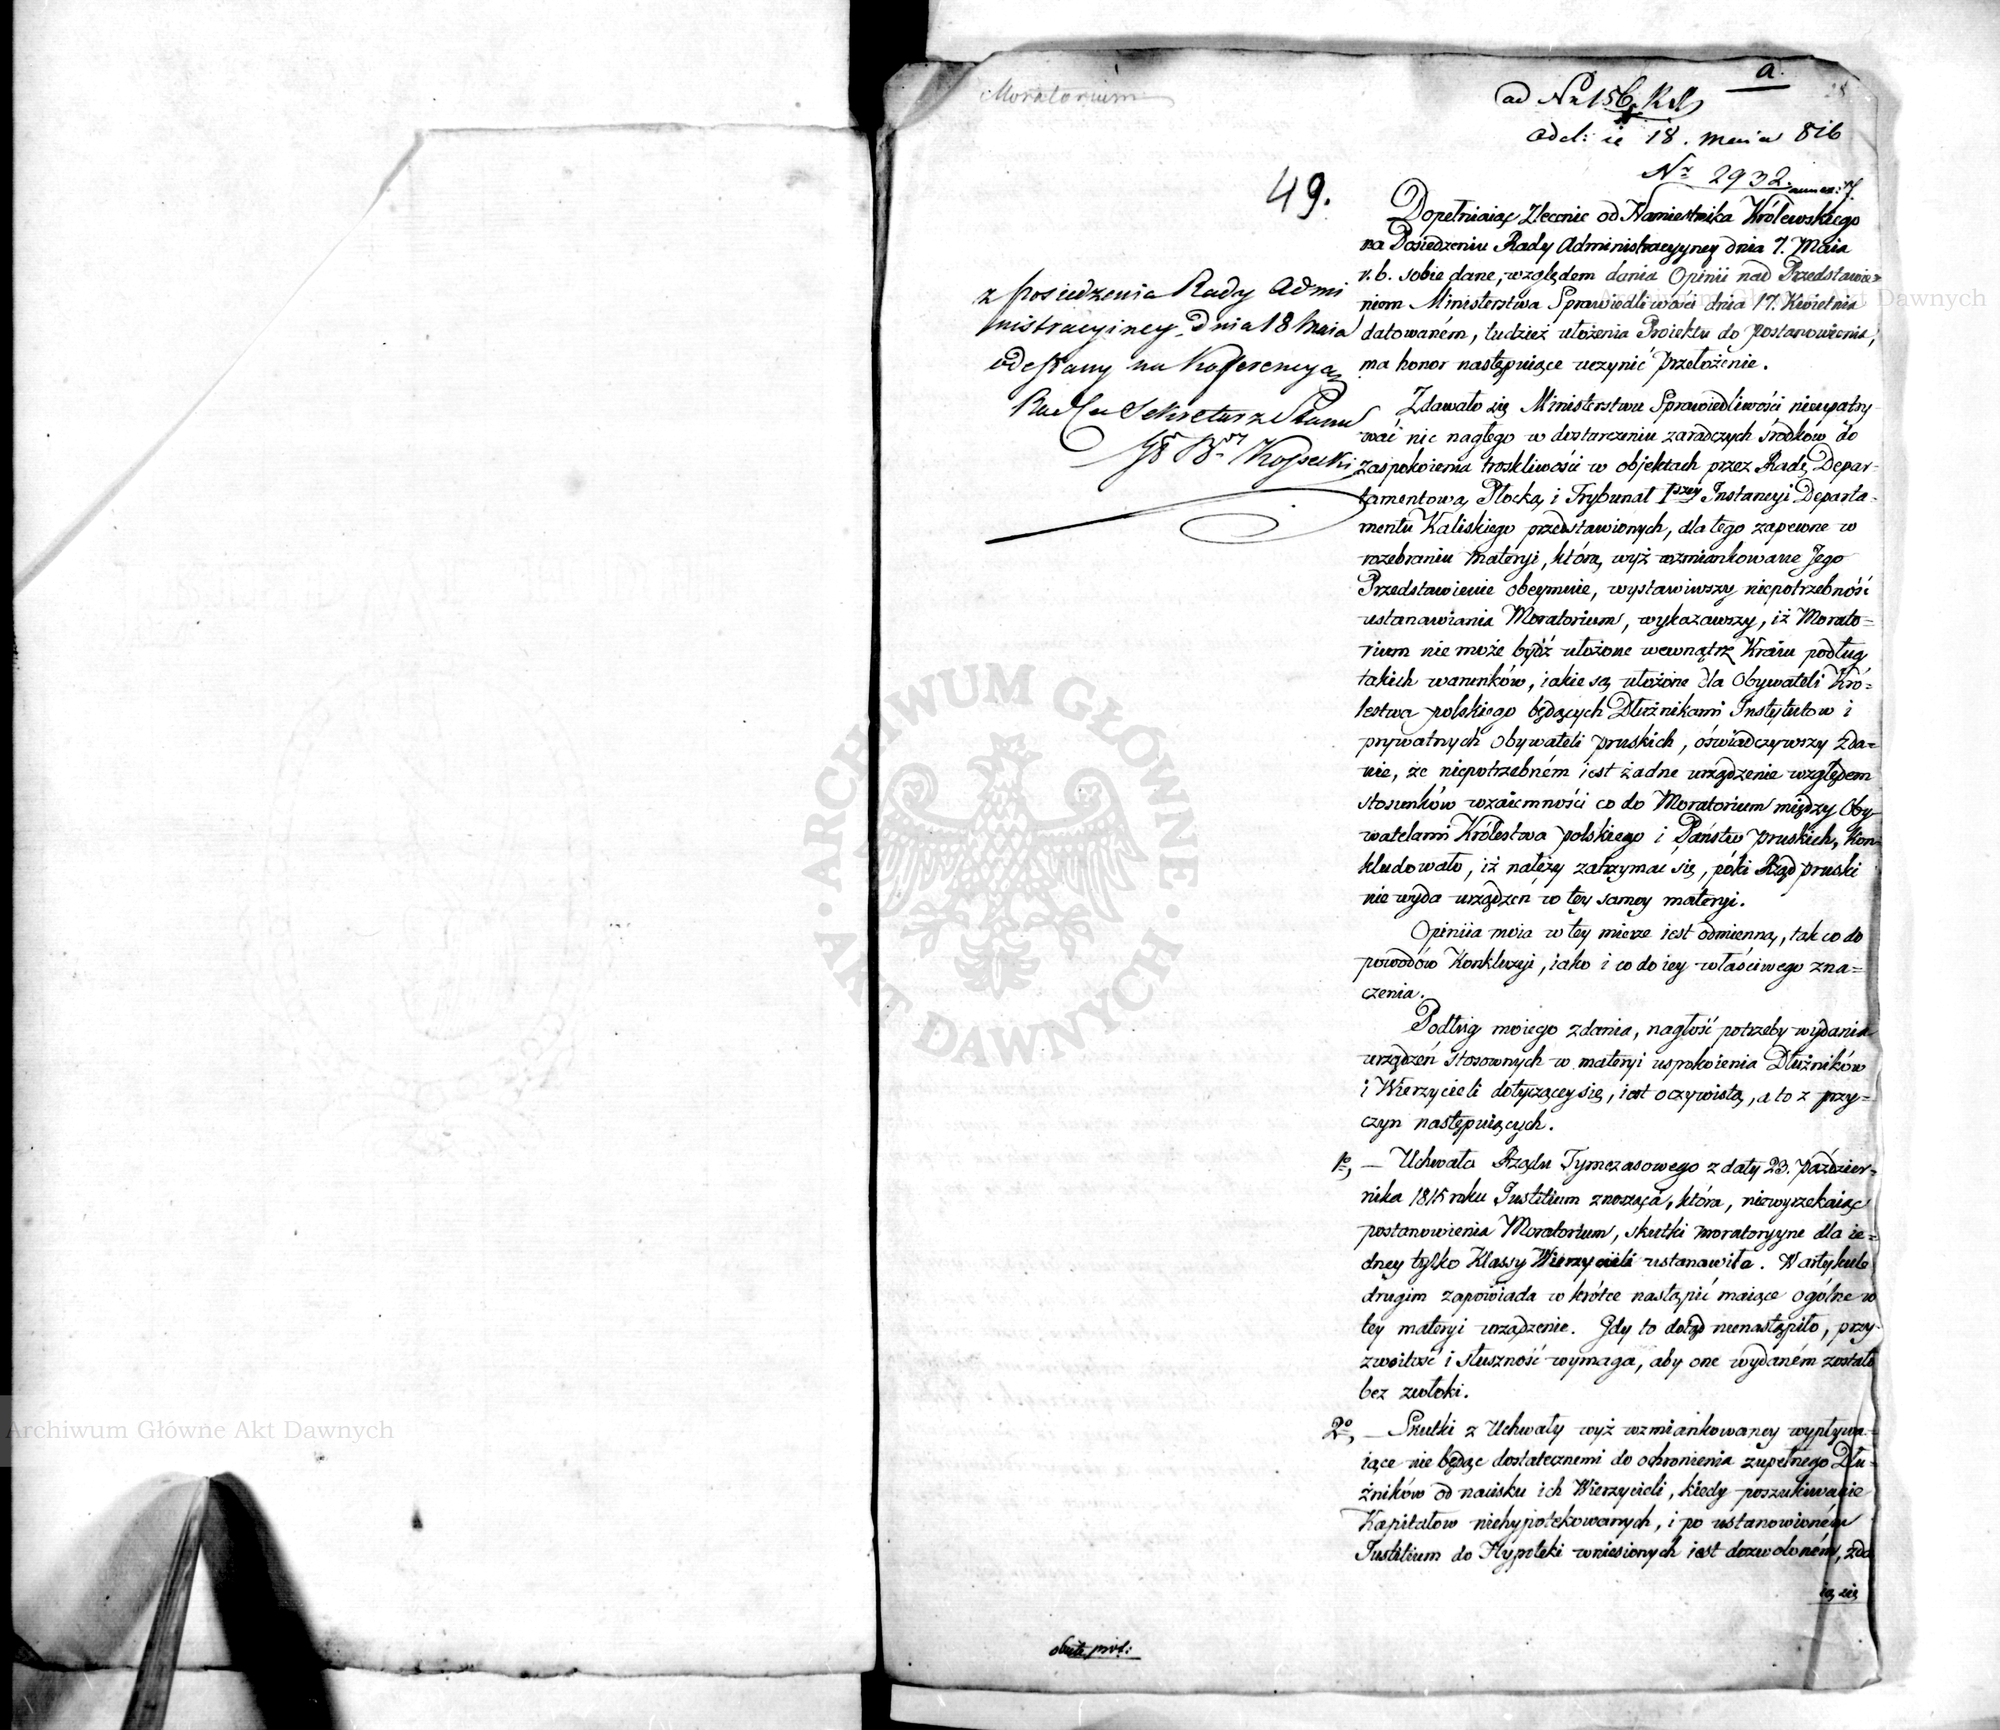 Moratorium
a.
28
ad Nr 156
18. maia 816
Nr 2932.
49.
z posiedzenia Rady Admi
nistracyiney Dnia 18 Maia
odesłany na Konferencyą
Radca Sekretarz Stanu
Kossecki
Dopełniaiąc Zlecenie od Namiestnika Królewskiego
na Posiedzeniu Rady Administracyyney dnia 7. Maia
r. b. sobie dane, względem dania Opinii nad Przedstawie=
niem Ministerstwa Sprawiedliwości dnia 17. Kwietnia
datowaném, tudzież ułożenia Proiektu do postanowienia,
ma honor następuiące uczynić przełożenie.
Zdawało się Ministerstwu Sprawiedliwości nieupatry-
wać nic nagłego w dostarczeniu zaradczych środków do
zaspokoienia troskliwości w objektach przez Radę Depar=
tamentową Płocką i Trybunał 1szey Instancyi Departa=
mentu Kaliskiego przedstawionych, dla tego zapewne w
rozebraniu materyi, którą wyż wzmiankowane Jego
Przedstawienie obeymuie, wystawiwszy niepotrzebność
ustanawiania Moratorium, wykazawszy, iż Morato=
rium nie może bydź ułożone wewnątrz Kraiu podług
takich warunków, iakie są ułożone dla Obywateli Kró=
lestwa polskiego będących Dłużnikami Instytutow i
prywatnych Obywateli pruskich, oświadczywszy zda=
nie, że niepotrzebném iest żadne urządzenie względem
stosunków wzaiemności co do Moratorium między Oby
watelami Królestwa polskiego i Państw pruskich, kon
kludowało, iż należy zatrzymać się, póki Rząd pruski
nie wyda urządzeń w tey samey materyi.
Opiniia moia w tey mierze iest odmienną, tak co do
powodów Konkluzyi, iako i co do iey właściwego zna=
czenia.
Podług moiego zdania, nagłość potrzeby wydania
urządzeń stosownych w materyi uspokoienia Dłużników
i Wierzycieli dotyczącey się, iest oczywistą, a to z przy=
czyn następuiących.
1o, — Uchwała Rządu Tymczasowego z daty 23. paździer=
nika 1815 roku Iustitium znosząca, która, niewyrzekaiąc
postanowienia Moratorium, skutki moratoryyne dla ie=
dney tylko Klassy Wierzycieli ustanowiła. W artykule
drugim zapowiada wkrótce nastąpić maiące ogólne w
tey materyi urządzenie. Gdy to dotąd nienastąpiło, przy-
zwoitość i słuszność wymaga, aby one wydaném zostało
bez zwłoki.
2o, — Skutki z Uchwały wyż wzmiankowaney wypływa=
iące nie będąc dostatecznemi do ochronienia zupełnego Dłu=
żników od nacisku ich Wierzycieli, kiedy poszukiwanie
Kapitałow niehypotekowanych, i po ustanowioném
Iustitium do Hypoteki wniesionych iest dozwoloném, zda
ią się
ARCHIWUM GŁÓWNE AKT DAWNYCH
Archiwum Główne Akt Dawnych
Archiwum Główne Akt Dawnych